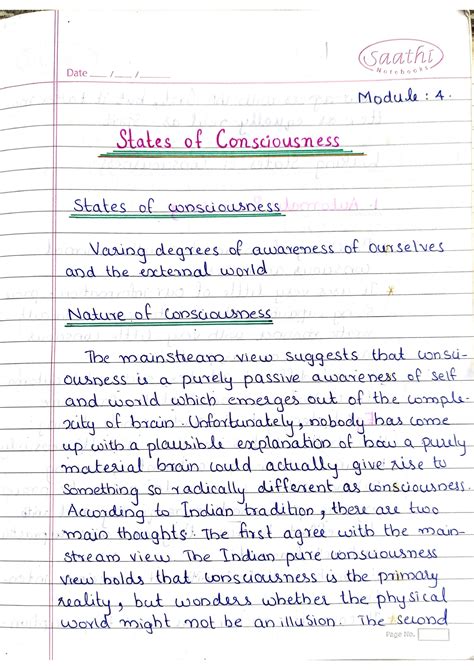 Saathi
Notebooks
Date __/__/__
Module : 4.
States of Consciousness
States of consciousness
Varing degrees of awareness of ourselves
and the external world
Nature of Consciousness
The mainstream view suggests that consci-
ousness is a purely passive awareness of self
and world which emerges out of the comple-
xity of brain. Unfortunately, nobody has come
up with a plausible explanation of how a purly
material brain could actually give rise to
something so radically different as consciousness.
According to Indian tradition, there are two
main thoughts: The first agree with the main-
stream view. The Indian pure consciousness
view holds that consciousness is the primary
reality, but wonders whether the physical
world might not be an illusion. The second
Page No.